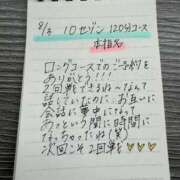 8/3 10セゾン 120分コース
本指名
ロングコースでのご予約を
ありがとう!!!
2回戦できるね〜なんて
話していたのに、お互いに
会話に夢中になって
あっという間に時間に
なっちゃったね(笑)
次回こそ2回戦を♡♡♡